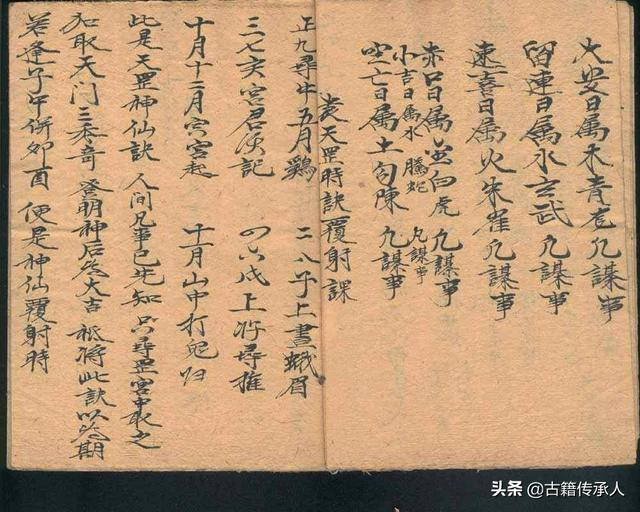 大安日属木青龙凡謀事
留連日属水玄武凡謀事
速喜日属火朱雀凡謀事
赤口日属金白虎凡謀事
小吉日属水騰蛇凡謀事
空亡日属土勾陳凡謀事
袁天罡時訣覆射課
正九尋牛五月鷄 二八子上畫蛾眉
三七亥宮君須記 四六戌上好尋推
十月十二月宮起 十一月山中打兔归
此是天罡神仙訣 人间凡事已先知 只尋罡宮中取之
加取天门三奇 登明神后癸大吉 祗将此訣以為期
若逢子午併卯酉 便是神仙覆射時
头条 @古籍传承人